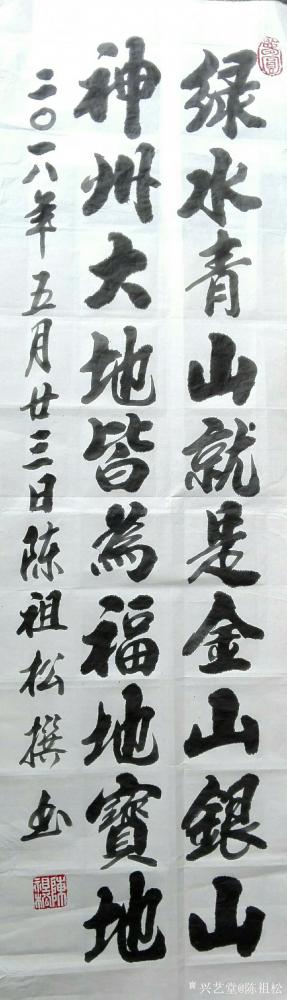 绿水青山就是金山銀山
神州大地皆為福地寶地
二〇一八年五月廿三日陈祖松撰书
陳祖松
兴艺堂@陈祖松